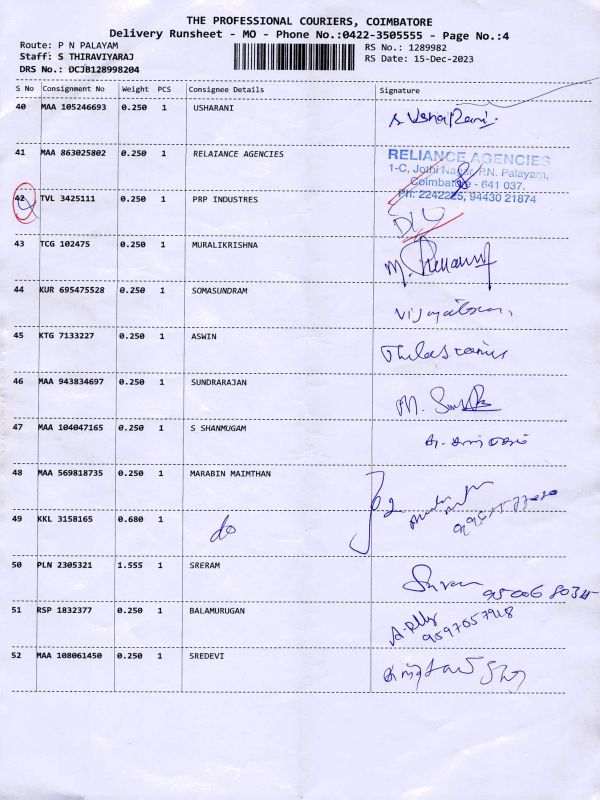 THE PROFESSIONAL COURIERS, COIMBATORE
Delivery Runsheet - MO - Phone No.:0422-3505555 - Page No.:4
Route: P N PALAYAM
RS No.: 1289982
Staff: S THIRAVIYARAJ
RS Date: 15-Dec-2023
DRS No.: DCJB128998204
S No Consignment No Weight PCS Consignee Details Signature
40 MAA 105246693 0.250 1 USHARANI
S Usha Rani.
41 MAA 863025802 0.250 1 RELAIANCE AGENCIES
RELIANCE AGENCIES
1-C, Jothi Nagar, P.N. Palayam,
Coimbatore - 641 037.
Ph: 2242225, 94430 21874
42 TVL 3425111 0.250 1 PRP INDUSTRES
DIL
43 TCG 102475 0.250 1 MURALIKRISHNA
44 KUR 695475528 0.250 1 SOMASUNDRAM
45 KTG 7133227 0.250 1 ASWIN
46 MAA 943834697 0.250 1 SUNDRARAJAN
47 MAA 104047165 0.250 1 S SHANMUGAM
48 MAA 569818735 0.250 1 MARABIN MAIMTHAN
49 KKL 3158165 0.680 1 do
50 PLN 2305321 1.555 1 SRERAM
51 RSP 1832377 0.250 1 BALAMURUGAN
9597057918
52 MAA 108061450 0.250 1 SREDEVI